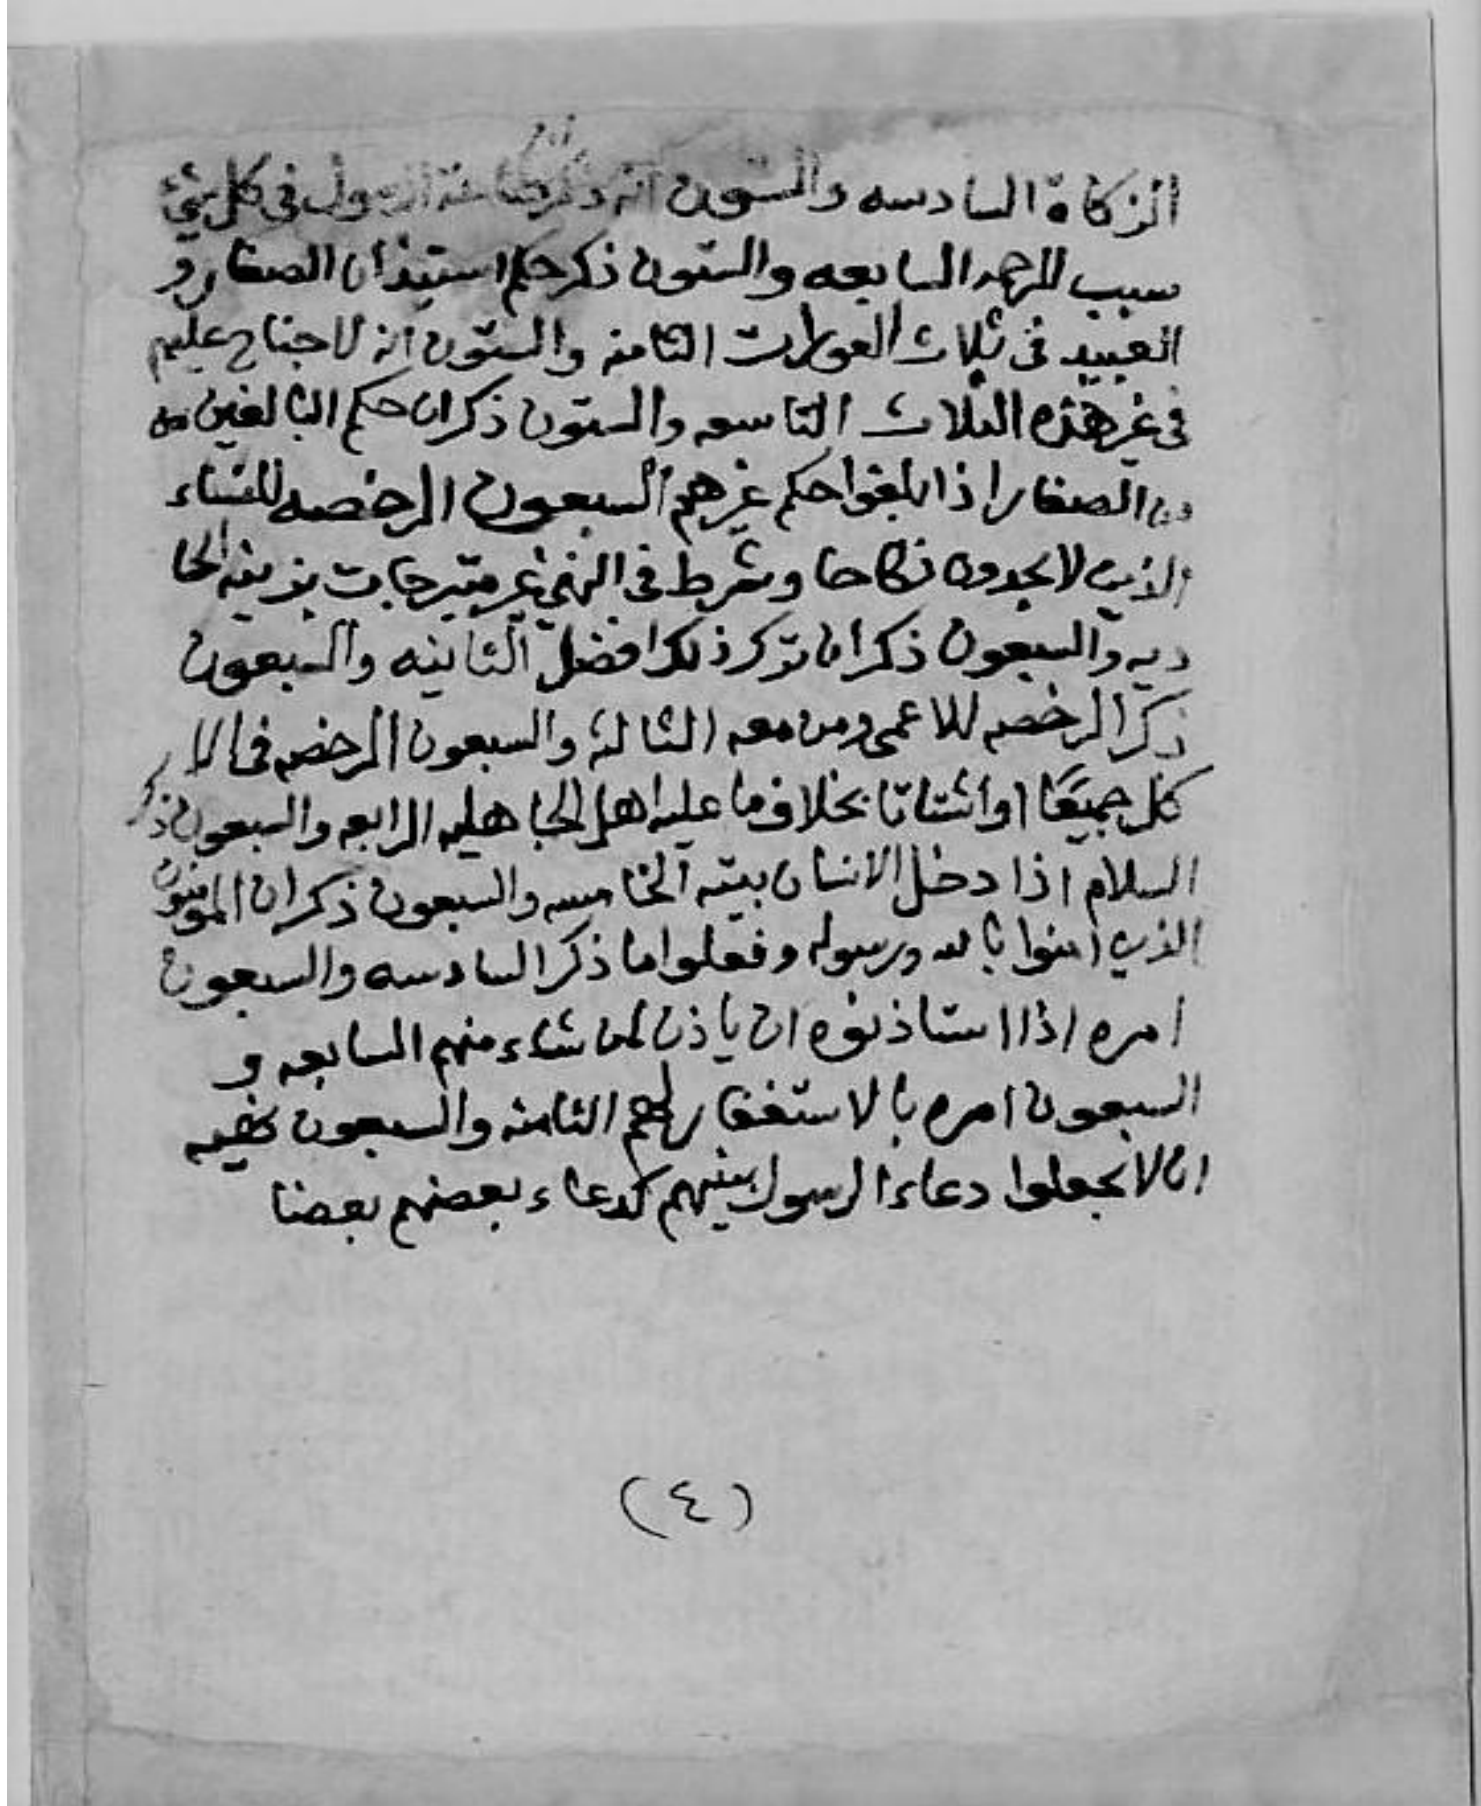 الزكاة السادسه والستون انه ذكر طاعة الرسول في كل شيء
سبب للرحمه السابعه والستون ذكر حكم استيذان الصغار و
العبيد في ثلاث العورات الثامنه والستون انه لا جناح عليهم
في غير هذه الثلاث التاسعه والستون ذكر ان حكم البالغين
من الصغار اذا بلغوا حكم غيرهم السبعون الرخصه للنساء
الذين لا يجدون نكاحا وشرط في النهي غير متبرجات بزينه الحا
ديه والسبعون ذكر ان ترك ذلك افضل الثانيه والسبعون
ذكر الرخصه للاعمى ومن معه الثالثه والسبعون الرخصه في الا
كل جميعًا او اشتاتا بخلاف ما عليه اهل الجاهليه الرابعه والسبعون ذكر
السلام اذا دخل الانسان بيته الخامسه والسبعون ذكر ان المومنون
الذين امنوا بالله ورسوله وفعلوا ما ذكر السادسه والسبعون
امره اذا استاذنوه ان ياذن لمن شاء منهم السابعه و
السبعون امره بالاستغفار لهم الثامنه والسبعون نهيه
ان لا يجعلوا دعاء الرسول بينهم كدعاء بعضهم بعضا
(٤)